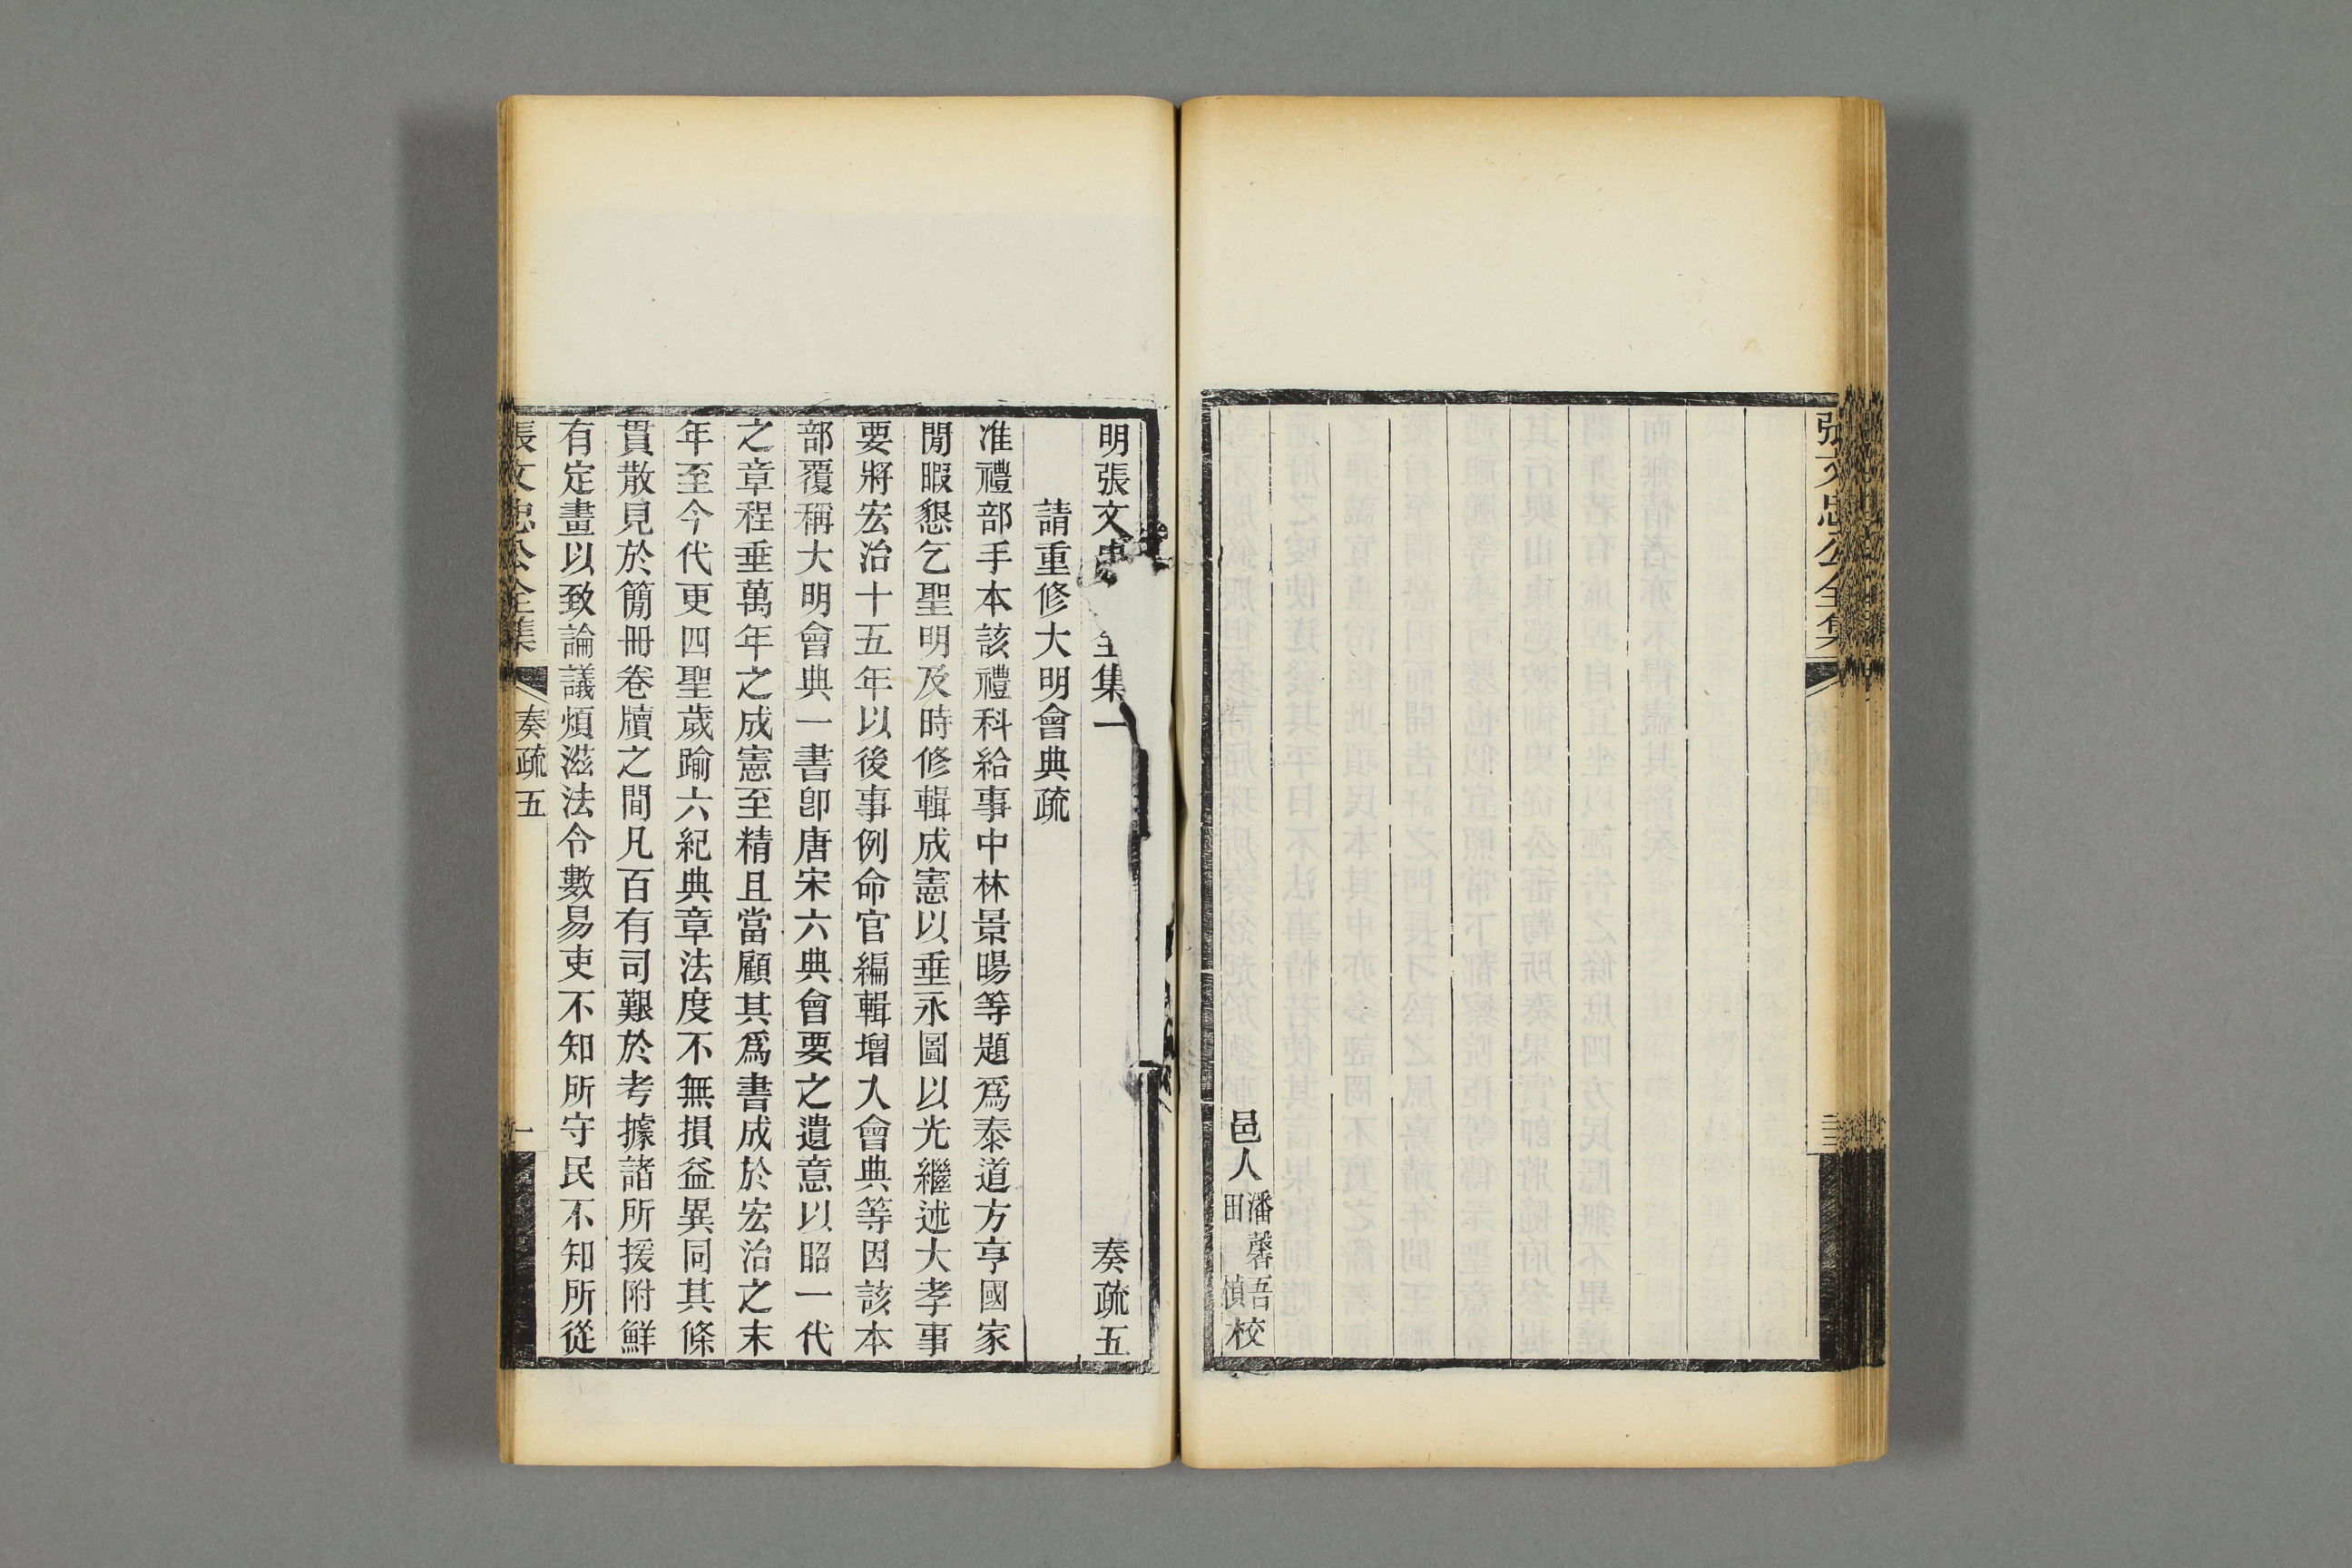 張文忠公全集
三三
邑人潘馨吾田楨校
明張文忠 全集一 奏疏五
請重修大明會典疏
准禮部手本該禮科給事中林景暘等題爲泰道方亨國家
閒暇懇乞聖明及時修輯成憲以垂永圖以光繼述大孝事
要將宏治十五年以後事例命官編輯增入會典等因該本
部覆稱大明會典一書卽唐宋六典會要之遺意以昭一代
之章程垂萬年之成憲至精且當顧其爲書成於宏治之末
年至今代更四聖歲踰六紀典章法度不無損益異同其條
貫散見於簡冊卷牘之間凡百有司艱於考據諸所援附鮮
有定畫以致論議煩滋法令數易吏不知所守民不知所從
張文忠公全集 奏疏五 一